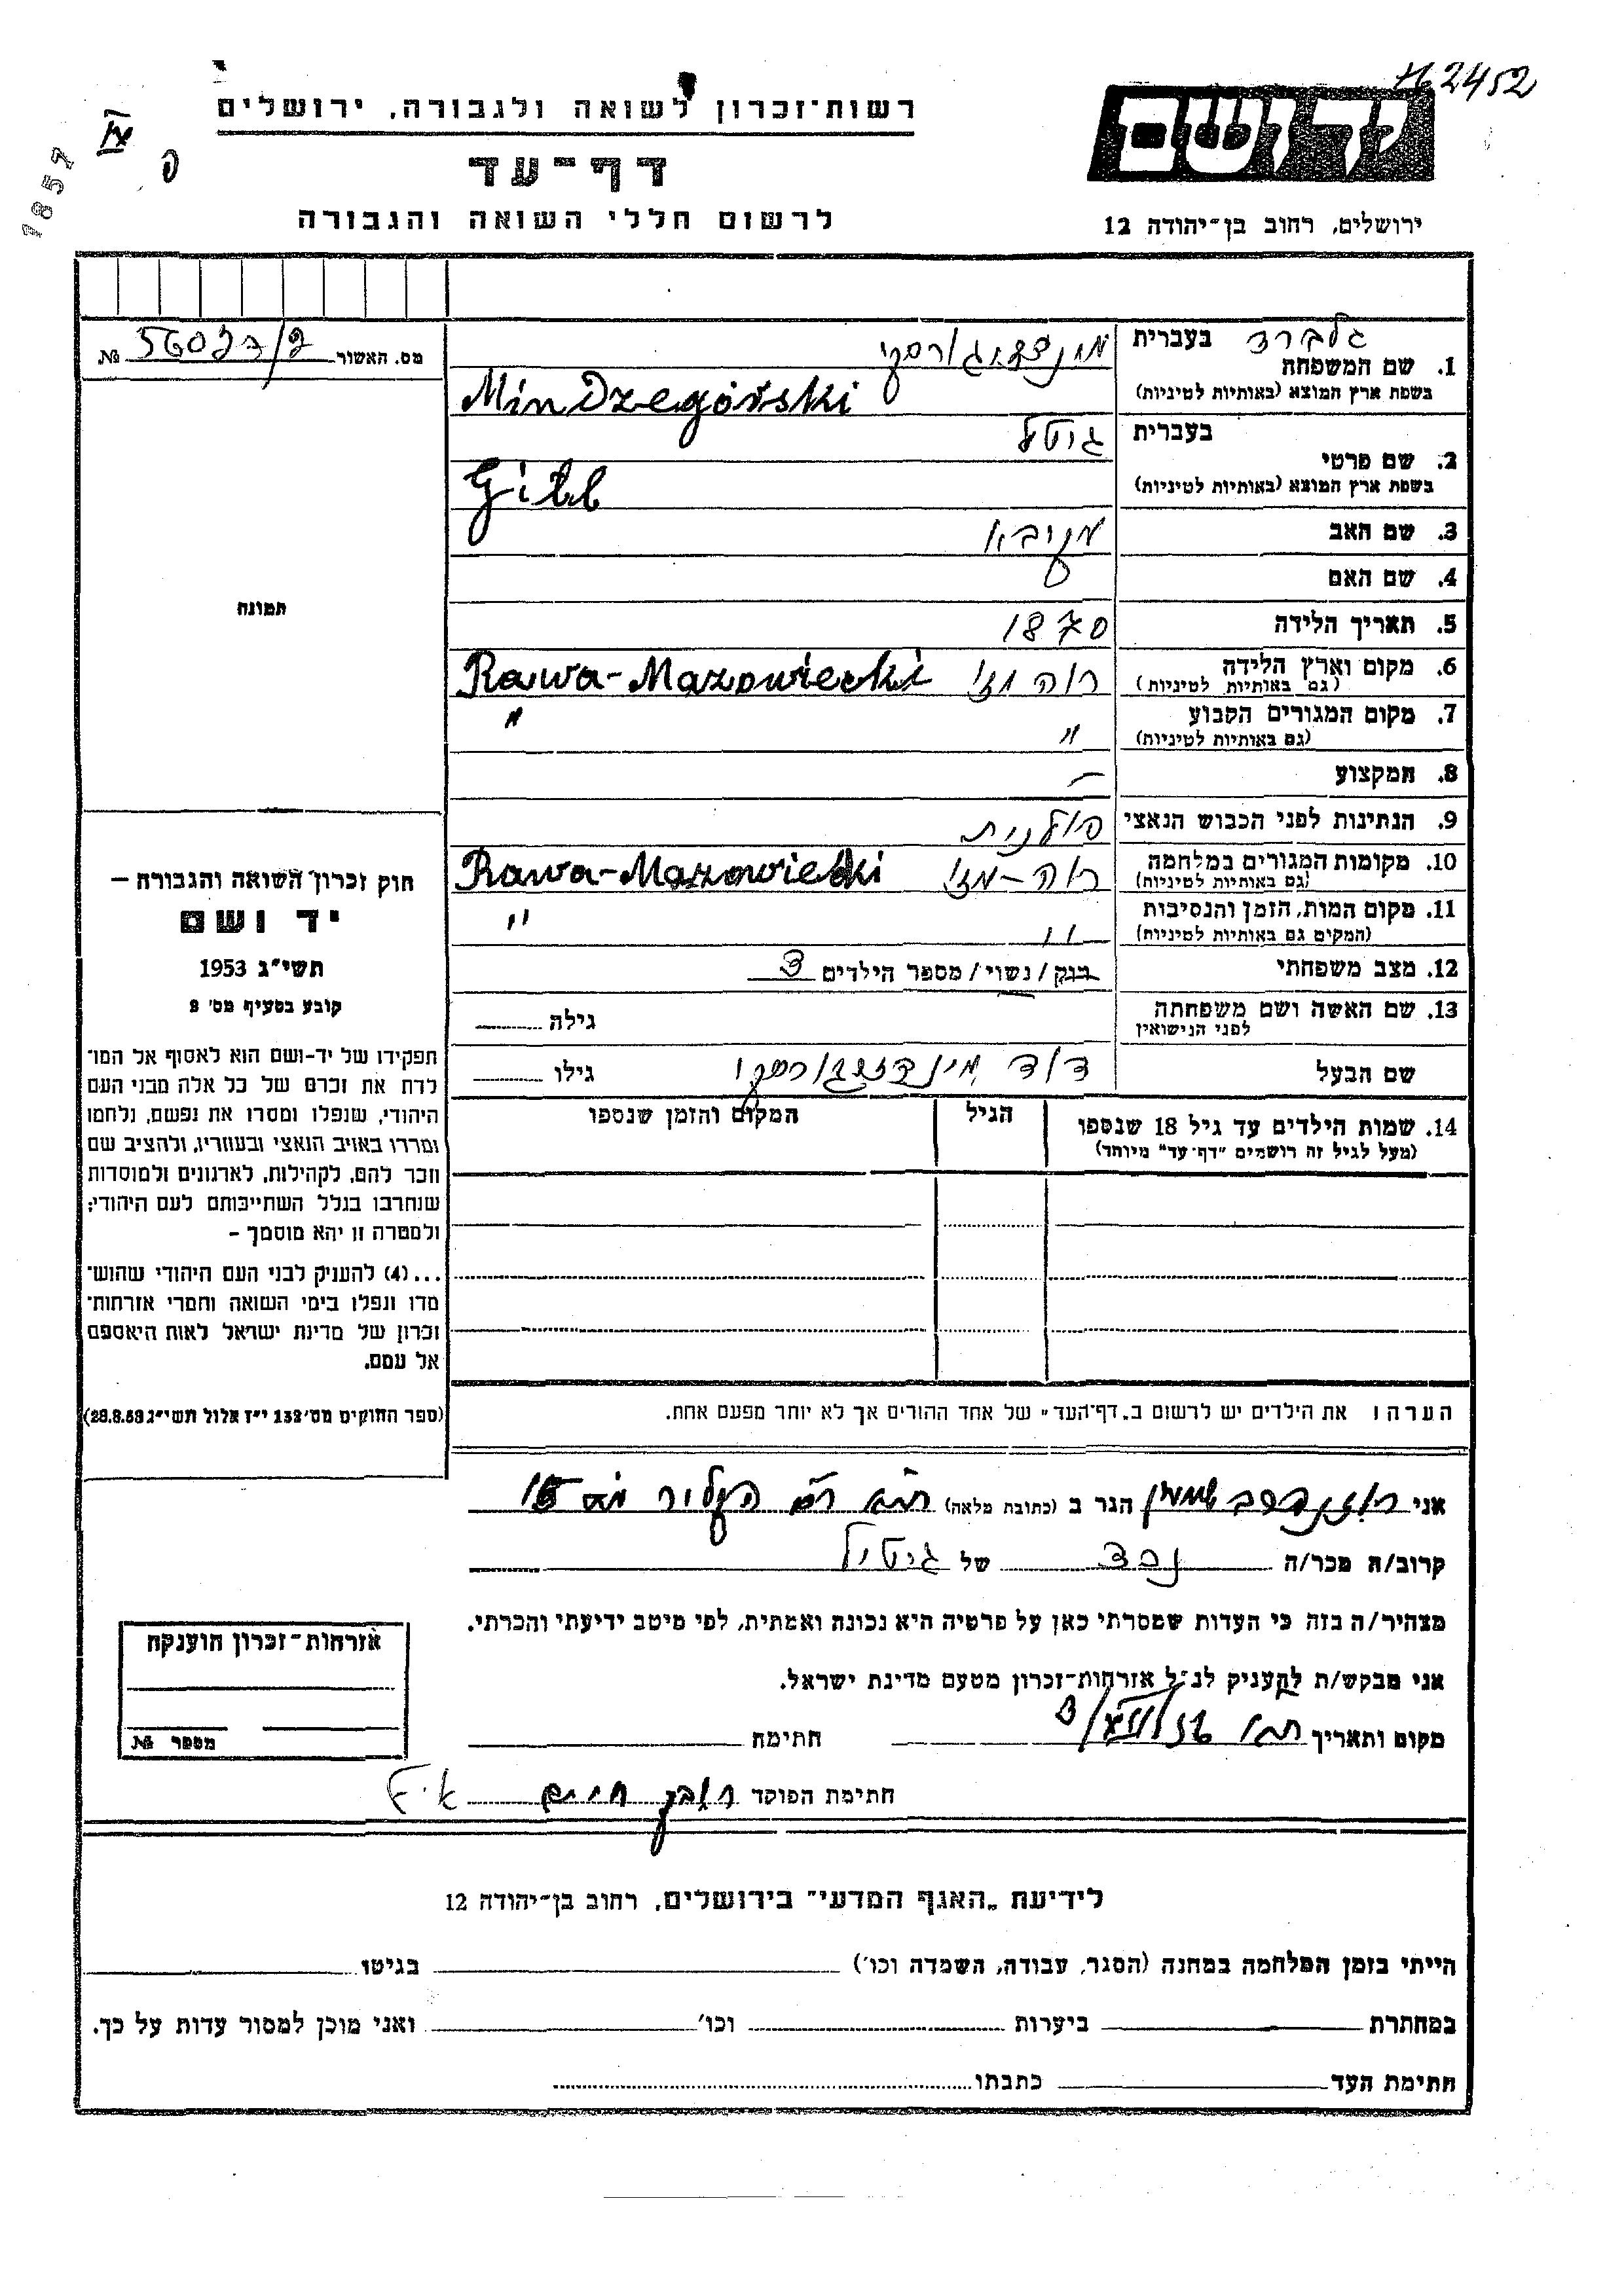 2452
רשות־זכרון לשואה ולגבורה, ירושלים
דף־עד
לרשום חללי השואה והגבורה
1857
יד ושם
ירושלים, רחוב בן־יהודה 12
מס. האשור №
1. שם המשפחה בעברית
בשפת ארץ המוצא (באותיות לטיניות) MinDzegórski
2. שם פרטי בעברית גיטל
בשפת ארץ המוצא (באותיות לטיניות) Gitl
3. שם האב
4. שם האם
5. תאריך הלידה 1870
6. מקום וארץ הלידה רוה מז' Rawa-Mazowiecki
(גם באותיות לטיניות)
7. מקום המגורים הקבוע " "
(גם באותיות לטיניות)
8. המקצוע —
9. הנתינות לפני הכבוש הנאצי פולנית
10. מקומות המגורים במלחמה רוה-מז' Rawa-Mazowiecki
(גם באותיות לטיניות)
11. מקום המות, הזמן והנסיבות " "
(המקום גם באותיות לטיניות)
12. מצב משפחתי רווק/נשוי/מספר הילדים 3
13. שם האשה ושם משפחתה גילה
לפני הנישואין
שם הבעל דוד גילו
14. שמות הילדים עד גיל 18 שנספו הגיל המקום והזמן שנספו
(מעל לגיל זה רושמים "דף־עד" מיוחד)
תמונה
חוק זכרון השואה והגבורה —
יד ושם
תשי"ג 1953
קובע בסעיף מס'
תפקידו של יד-ושם הוא לאסוף אל המו־
לדת את זכרם של כל אלה מבני העם
היהודי, שנפלו ומסרו את נפשם, נלחמו
ומרדו באויב הנאצי ובעוזריו, ולהציב שם
וזכר להם, לקהילות, לארגונים ולמוסדות
שנחרבו בגלל השתייכותם לעם היהודי;
ולמטרה זו יהא מוסמך –
...(4) להעניק לבני העם היהודי שהוש־
מדו ונפלו בימי השואה והמרי אזרחות־
זכרון של מדינת ישראל לאות היאספם
אל עמם.
(ספר החוקים מס' 132 י"ז אלול תשי"ג 28.8.53)
הערה: את הילדים יש לרשום ב„דף־העד" של אחד ההורים אך לא יותר מפעם אחת.
אני הגר ב (כתובת מלאה)
קרוב/ה מכר/ה נכד של גיטל
מצהיר/ה בזה כי העדות שמסרתי כאן על פרטיה היא נכונה ואמתית, לפי מיטב ידיעתי והכרתי.
אני מבקש/ת להעניק לנ"ל אזרחות־זכרון מטעם מדינת ישראל.
מקום ותאריך חתימה
חתימת הפוקד חיים
אזרחות־זכרון הוענקה
מספר №
לידיעת „האגף המדעי" בירושלים, רחוב בן־יהודה 12
הייתי בזמן המלחמה במחנה (הסגר, עבודה, השמדה וכו') בגיטו
במחתרת ביערות וכו' ואני מוכן למסור עדות על כך.
חתימת העד כתבתו